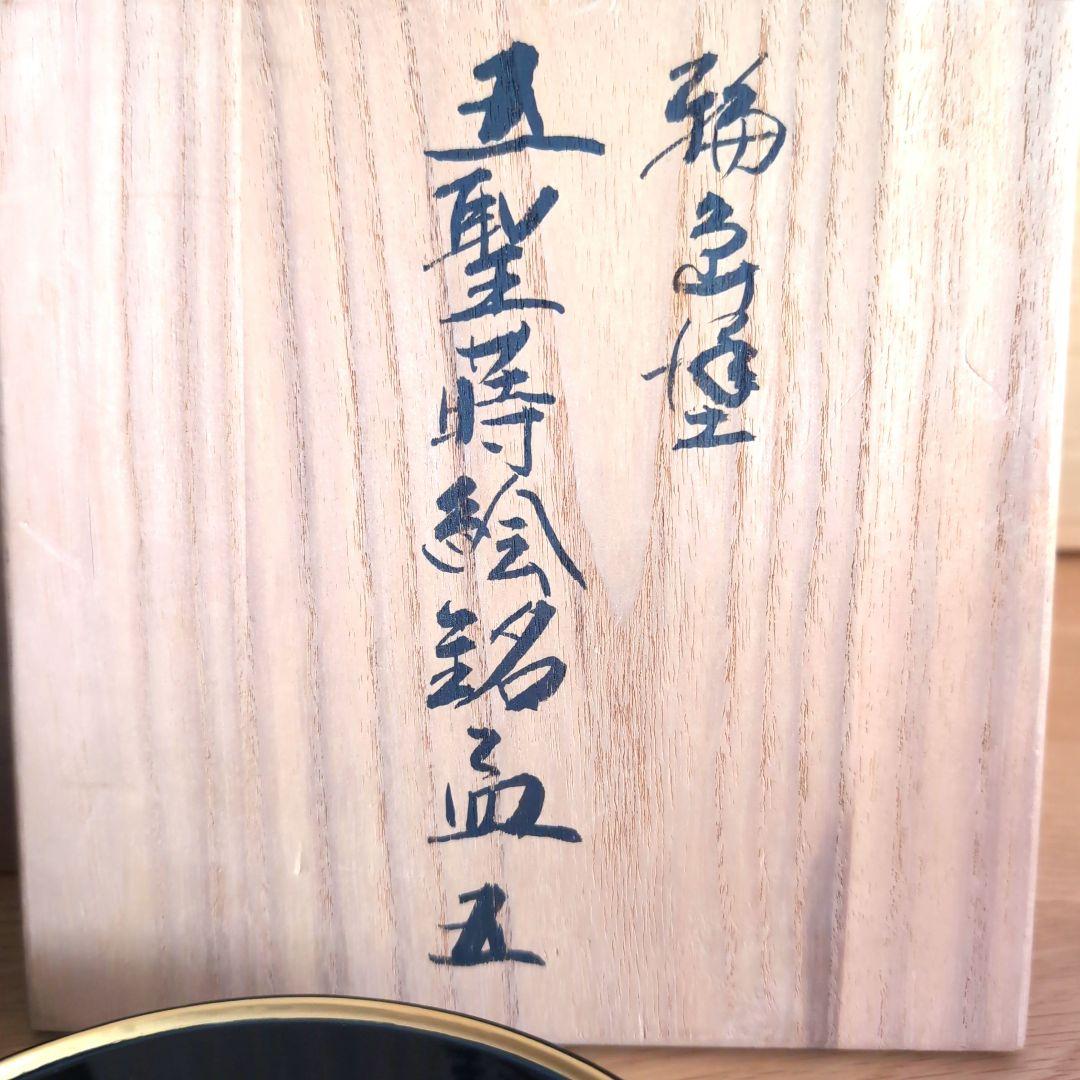 輪島塗
五聖蒔絵銘皿 五